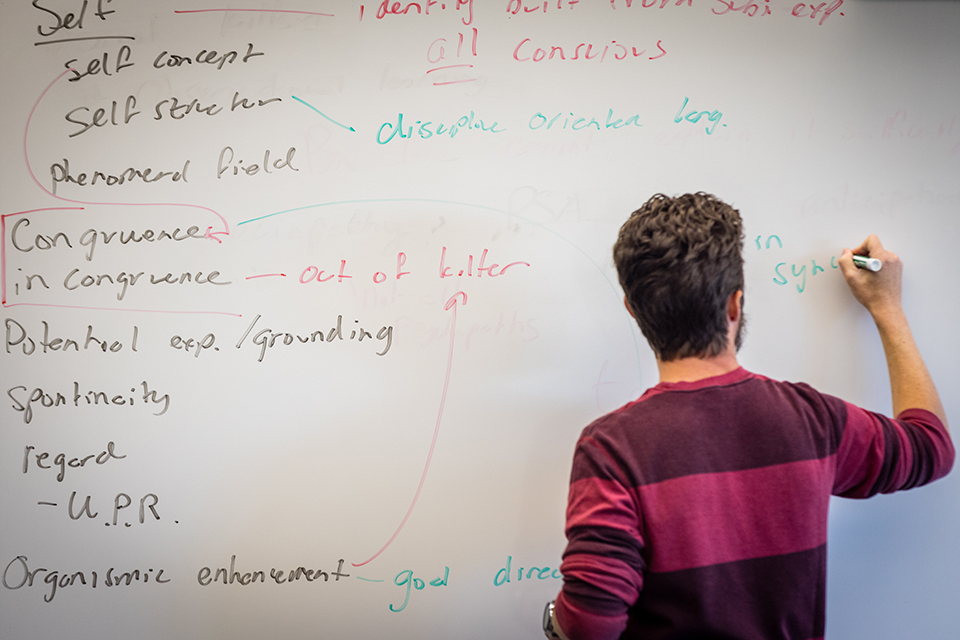 Self — identity built from subj. exp.
all conscious
self concept
self structur
discipline oriented lang.
phenomenal field
Congruence
in
sync
in congruence — out of kilter
Potential exp. /grounding
spontincity
regard
- U.P.R.
Organismic enhancement — goal direc